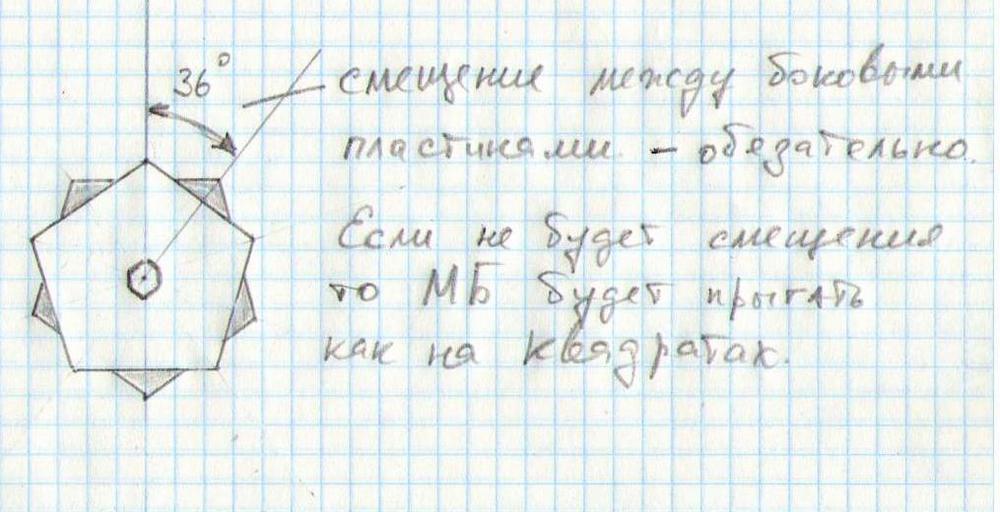 36°
смещение между боковыми
пластинами - обязательно.
Если не будет смещения
то МБ будет прыгать
как на квадратах.